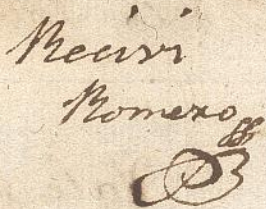 Recivi
Romero